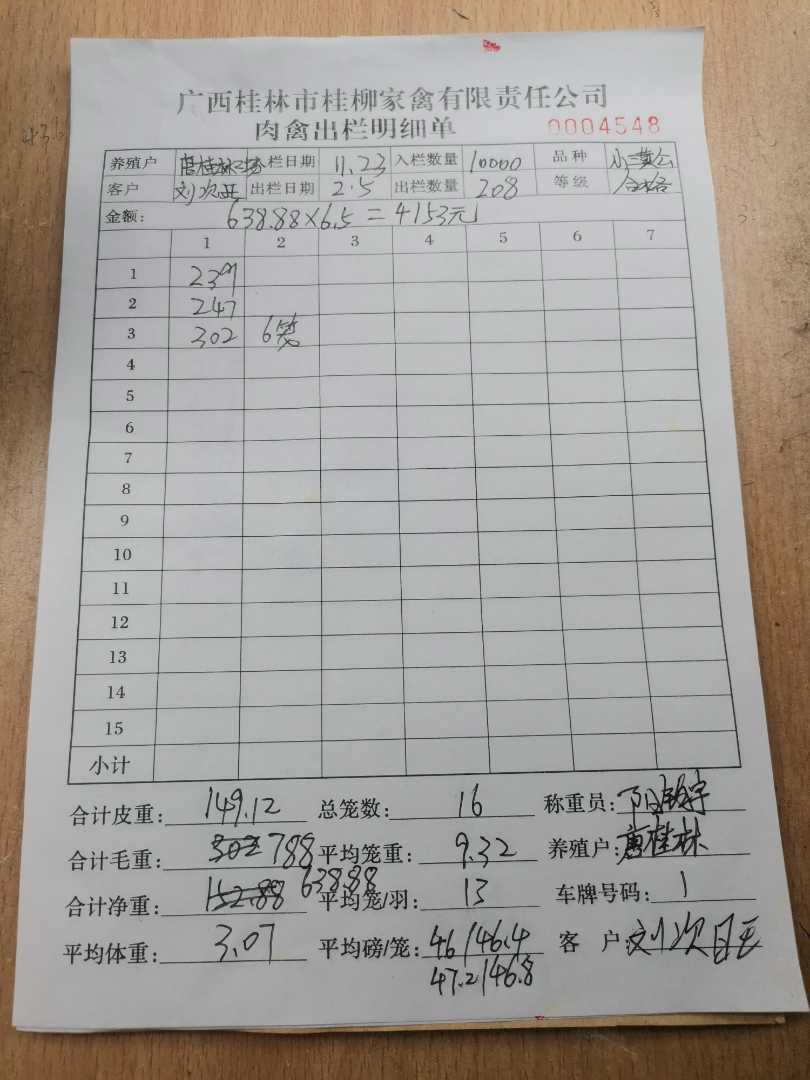 广西桂林市桂柳家禽有限责任公司
肉禽出栏明细单 0004548
养殖户 唐桂林 入栏日期 11.23 入栏数量 10000 品种 小三黄公
客户 刘次 出栏日期 2.5 出栏数量 208 等级 合格
金额: 638.88×6.5=4153元
1 2 3 4 5 6 7
1 239
2 247
3 302 6笼
4
5
6
7
8
9
10
11
12
13
14
15
小计
合计皮重: 149.12 总笼数: 16 称重员:
合计毛重: 302 788 平均笼重: 9.32 养殖户: 唐桂林
合计净重: 152.88 638.88 平均笼/羽: 13 车牌号码: 1
平均体重: 3.07 平均磅/笼: 46/46.4 客户: 刘次
47.2/46.8